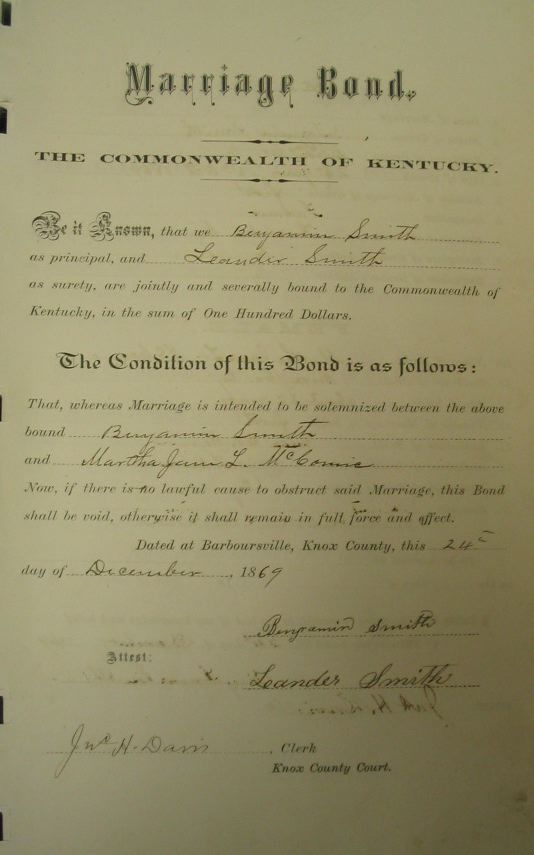 Marriage Bond.
THE COMMONWEALTH OF KENTUCKY.
Be it Known, that we Benjamin Smith
as principal, and Leander Smith
as surety, are jointly and severally bound to the Commonwealth of
Kentucky, in the sum of One Hundred Dollars.
The Condition of this Bond is as follows:
That, whereas Marriage is intended to be solemnized between the above
bound Benjamin Smith
and Martha Jane L. McComic
Now, if there is no lawful cause to obstruct said Marriage, this Bond
shall be void, otherwise it shall remain in full force and effect.
Dated at Barboursville, Knox County, this 24
day of December, 1869
Benjamin Smith
Attest:
Leander Smith
Jno H. Davis, Clerk
Knox County Court.